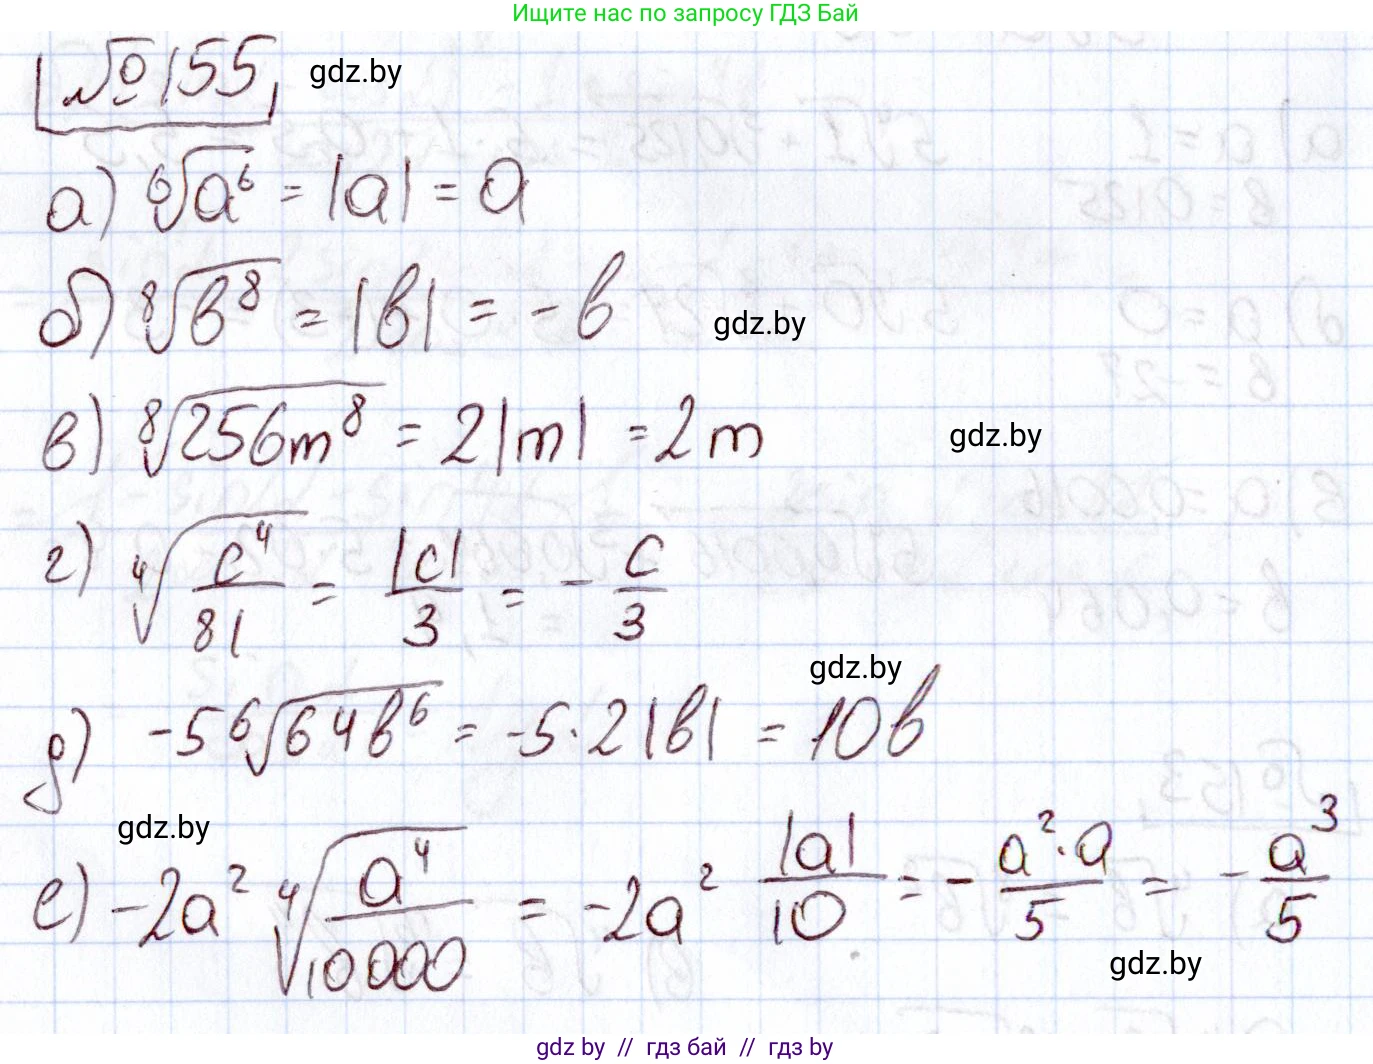 Ищите нас по запросу ГДЗ Бай
№155, gdz.by
а) ⁶√a⁶ = |a| = a
б) ⁸√b⁸ = |b| = -b gdz.by
в) ⁸√256m⁸ = 2|m| = 2m gdz.by
г) ⁴√(c⁴/81) = |c|/3 = - c/3
gdz.by
д) -5 ⁶√64b⁶ = -5·2|b| = 10b
gdz.by
е) -2a² ⁴√(a⁴/10000) = -2a² |a|/10 = - a²·a/5 = - a³/5
gdz.by
gdz by // гдз бай // гдз by